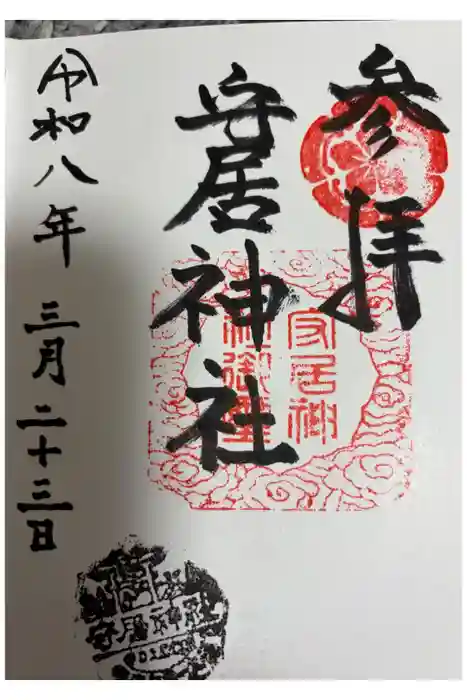 参拝
安居神社
令和八年 三月二十三日
安居神
安居神社